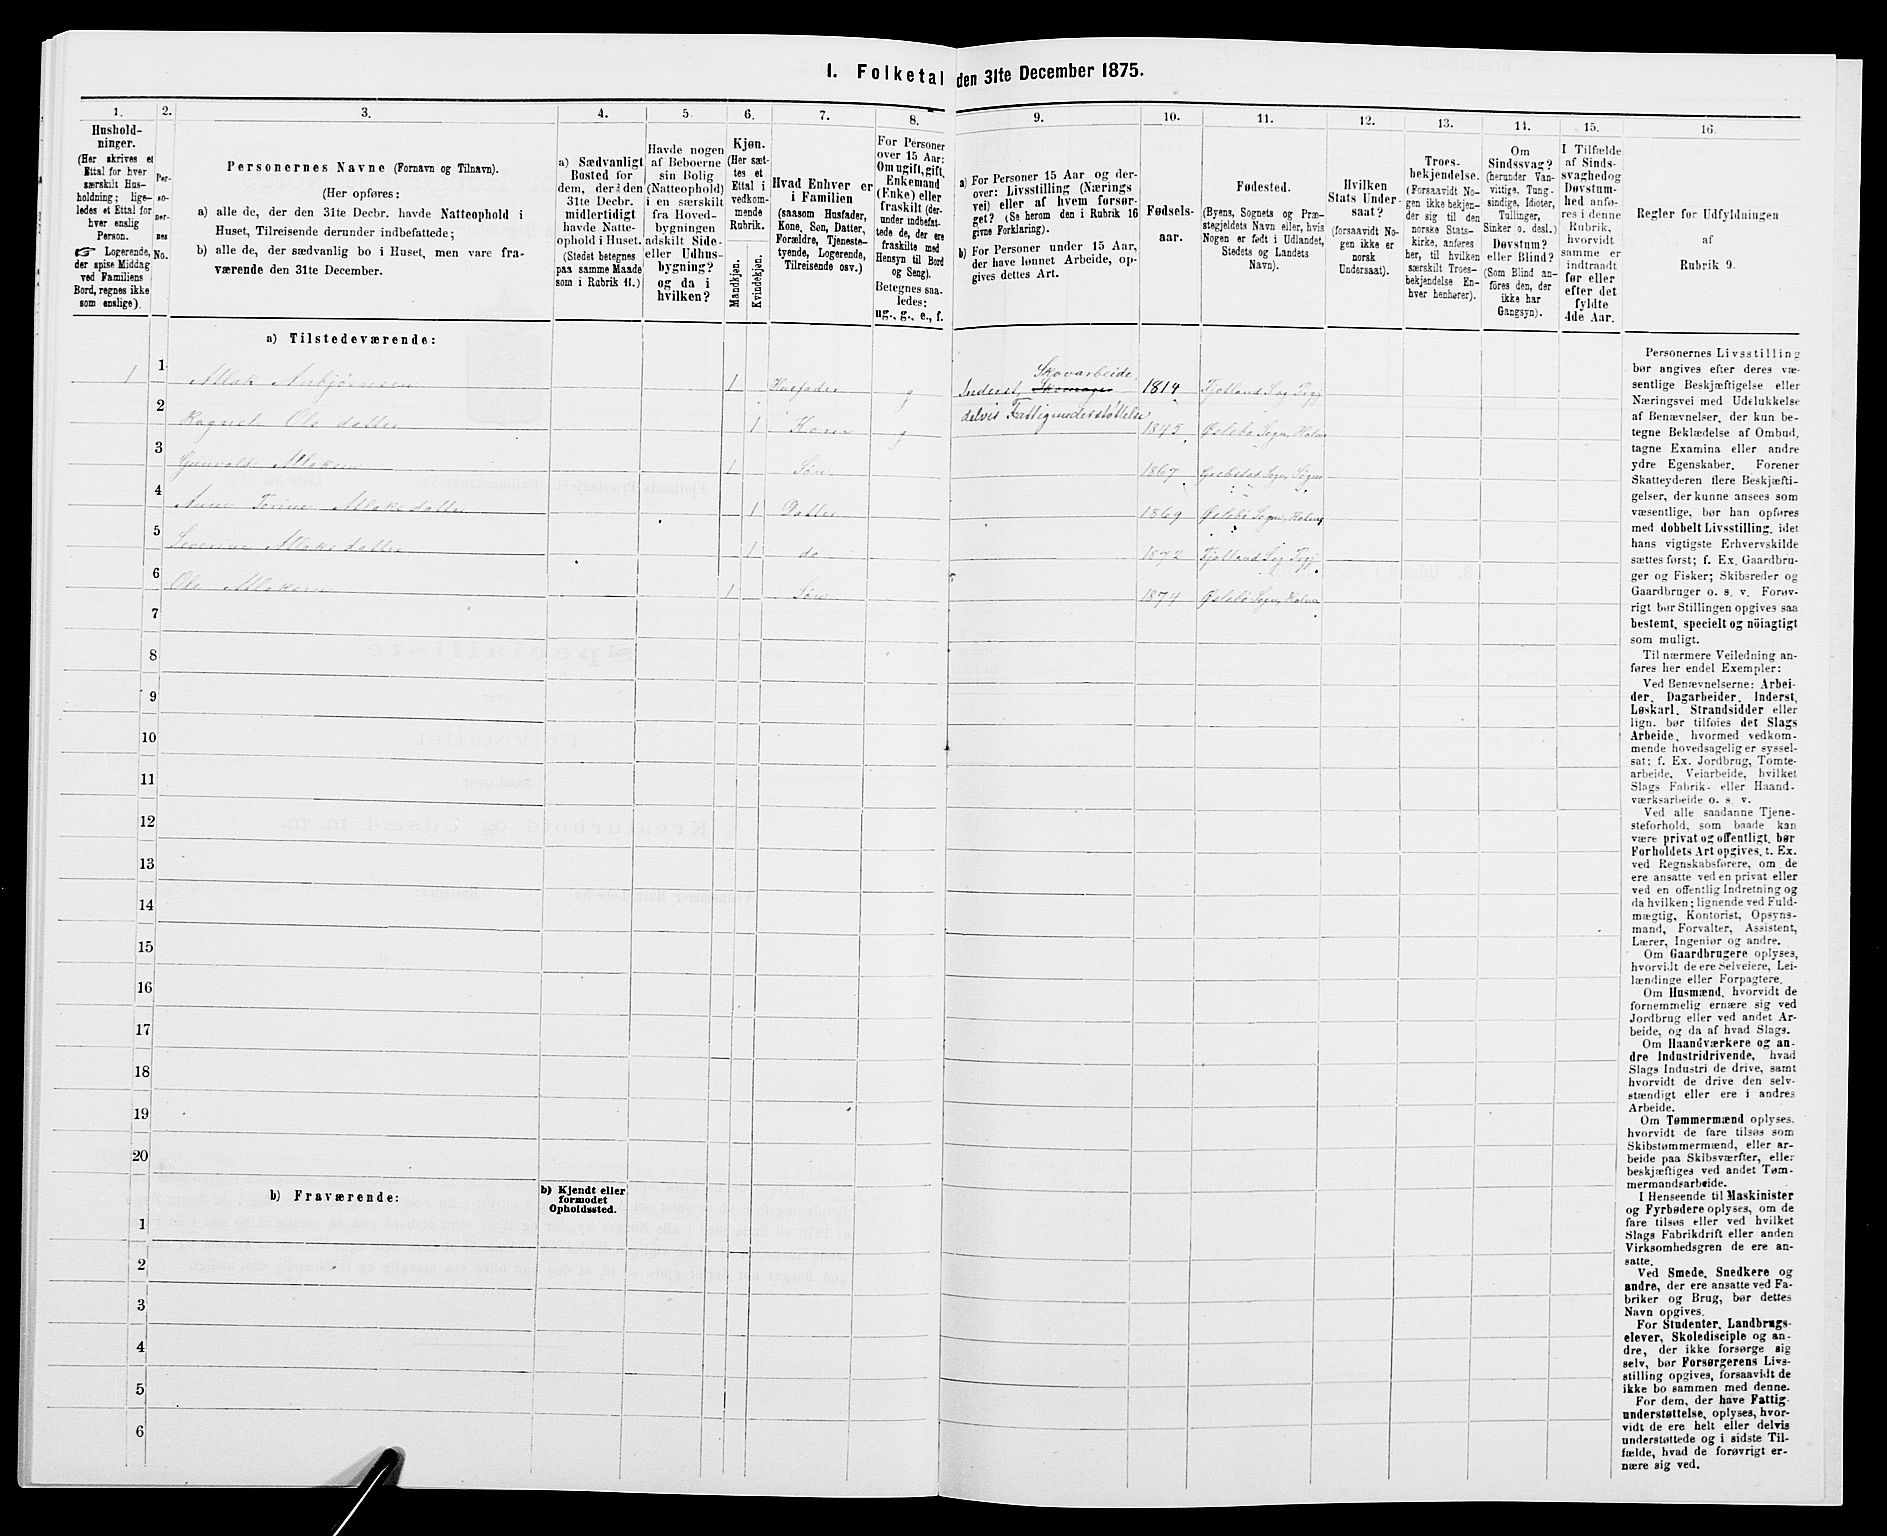 1. Folketal den 31te December 1875.
1.
Hushold-
ninger.
(Her skrives et
Ettal for hver
særskilt Hus-
holdning; lige-
ledes et Ettal for
hver enslig
Person.
☞ Logerende,
der spise Middag
ved Familiens
Bord, regnes ikke
som enslige).
2.
Per-
so-
ner-
nes
No.
3.
Personernes Navne (Fornavn og Tilnavn).
(Her opføres:
a) alle de, der den 31te Decbr. havde Natteophold i
Huset, Tilreisende derunder indbefattede;
b) alle de, der sædvanlig bo i Huset, men vare fra-
værende den 31te December.
4.
a) Sædvanligt
Bosted for
dem, der den
31te Decbr.
midlertidigt
havde Natte-
ophold i Huset.
(Stedet betegnes
paa samme Maade
som i Rubrik 11.)
5.
Havde nogen
af Beboerne
sin Bolig
(Natteophold)
i en særskilt
fra Hoved-
bygningen
adskilt Side-
eller Udhus-
bygning?
og da i
hvilken?
6.
Kjøn.
(Her sæt-
tes et
Ettal i
vedkom-
mende
Rubrik.
Mandkjøn.
Kvindekjøn.
7.
Hvad Enhver er
i Familien
(saasom Husfader,
Kone, Søn, Datter,
Forældre, Tjeneste-
tyende, Logerende,
Tilreisende osv.)
8.
For Personer
over 15 Aar:
Om ugift, gift,
Enkemand
(Enke) eller
fraskilt (der-
under indbefat-
tede de, der ere
fraskilte med
Hensyn til Bord
og Seng).
Betegnes saa-
ledes:
ug., g., e., f.
9.
a) For Personer 15 Aar og der-
over: Livsstilling (Nærings
vei) eller af hvem forsør-
get? (Se herom den i Rubrik 16
givne Forklaring).
b) For Personer under 15 Aar,
der have lønnet Arbeide, op-
gives dettes Art.
10.
Fødsels-
aar.
11.
Fødested.
(Byens, Sognets og Præ-
stegjeldets Navn eller, hvis
Nogen er født i Udlandet,
Stedets og Landets
Navn).
12.
Hvilken
Stats Under
saat?
(forsaavidt No-
gen ikke er
norsk
Undersaat).
13.
Troes-
bekjendelse.
(Forsaavidt No-
gen ikke bekjen-
der sig til den
norske Stats-
kirke, anføres
her, til hvilken
særskilt Troes-
bekjendelse En-
hver henhører).
14.
Om
Sindssvag?
(herunder Van-
vittige, Tung-
sindige, Idioter,
Tullinger,
Sinker o. desl.)
Døvstum?
eller Blind?
(Som Blind an-
føres den, der
ikke har
Gangsyn).
15.
I Tilfælde
af Sinds-
svaghed og
Døvstum-
hed anfø-
res i denne
Rubrik,
hvorvidt
samme er
indtraadt
før eller
efter det
fyldte
4de Aar.
16.
Regler for Udfyldningen
af
Rubrik 9.
a) Tilstedeværende:
1 1 Atlak Anbjørnsen 1 Husfader g Inderst, Skomager Skovarbeide 1814 Fjotland Sog
2 Ragnel Ols datter 1 Kone g delvis Fattigunderstøttelse 1845 Øslebø Sogn, Holm
3 Atlaksen 1 Søn 1867 Sogn, Søgne
4 Anne Torine Atlaksdatter 1 Datter 1869 Øslebø Sogn, Holm
5 Severine Atlaksdatter 1 do 1872 Fjotland Sog
6 Ole Atlaksen 1 Søn 1874 Øslebø Sogn, Holm
7
8
9
10
11
12
13
14
15
16
17
18
19
20
b) Fraværende:
b) Kjendt eller
formodet
Opholdssted.
1
2
3
4
5
6
Personernes Livsstilling
bør angives efter deres væ-
sentlige Beskjæftigelse eller
Næringsvei med Udelukkelse
af Benævnelser, der kun be-
tegne Beklædelse af Ombud,
tagne Examina eller andre
ydre Egenskaber. Forener
Skatteyderen flere Beskjæfti-
gelser, der kunne ansees som
væsentlige, bør han opføres
med dobbelt Livsstilling, idet
hans vigtigste Erhvervskilde
sættes først; f. Ex. Gaardbru-
ger og Fisker; Skibsreder og
Gaardbruger o. s. v. Forøv-
rigt bør Stillingen opgives saa
bestemt, specielt og nöiagtigt
som muligt.
Til nærmere Veiledning an-
føres her endel Exempler:
Ved Benævnelserne: Arbei-
der, Dagarbeider, Inderst,
Løskarl, Strandsidder eller
lign. bør tilføies det Slags
Arbeide, hvormed vedkom-
mende hovedsagelig er syssel-
sat; f. Ex. Jordbrug, Tomte-
arbeide, Veiarbeide, hvilket
Slags Fabrik- eller Haand-
værksarbeide o. s. v.
Ved alle saadanne Tjene-
steforhold, som baade kan
være privat og offentligt, bør
Forholdets Art opgives, t. Ex.
ved Regnskabsførere, om de
ere ansatte ved en privat eller
ved en offentlig Indretning og
da hvilken; lignende ved Fuld-
mægtig, Kontorist, Opsyns-
mand, Forvalter, Assistent,
Lærer, Ingeniør og andre.
Om Gaardbrugere oplyses,
hvorvidt de ere Selveiere, Lei-
lændinge eller Forpagtere.
Om Husmænd, hvorvidt de
fornemmelig ernære sig ved
Jordbrug eller ved andet Ar-
beide, og da af hvad Slags.
Om Haandværkere og an-
dre Industridrivende, hvad
Slags Industri de drive, samt
hvorvidt de drive den selv-
stændigt eller ere i andres
Arbeide.
Om Tømmermænd oplyses,
hvorvidt de fare tilsøs som
Skibstømmermænd, eller ar-
beide paa Skibsværfter, eller
beskjæftiges ved andet Tøm-
mermandsarbeide.
I Henseende til Maskinister
og Fyrbødere oplyses, om de
fare tilsøs eller ved hvilket
Slags Fabrikdrift eller anden
Virksomhedsgren de ere an-
satte.
Ved Smede, Snedkere og
andre, der ere ansatte ved Fa-
briker og Brug, bør dettes
Navn opgives.
For Studenter, Landbrugs-
elever, Skoledisciple og an-
dre, der ikke forsørge sig
selv, bør Forsørgerens Livs-
stilling opgives, forsaavidt de
ikke bo sammen med denne.
For dem, der have Fattig-
understøttelse, oplyses, hvor-
vidt de ere helt eller delvis
understøttede og i sidste Til-
fælde, hvad de forøvrigt er-
nære sig ved.